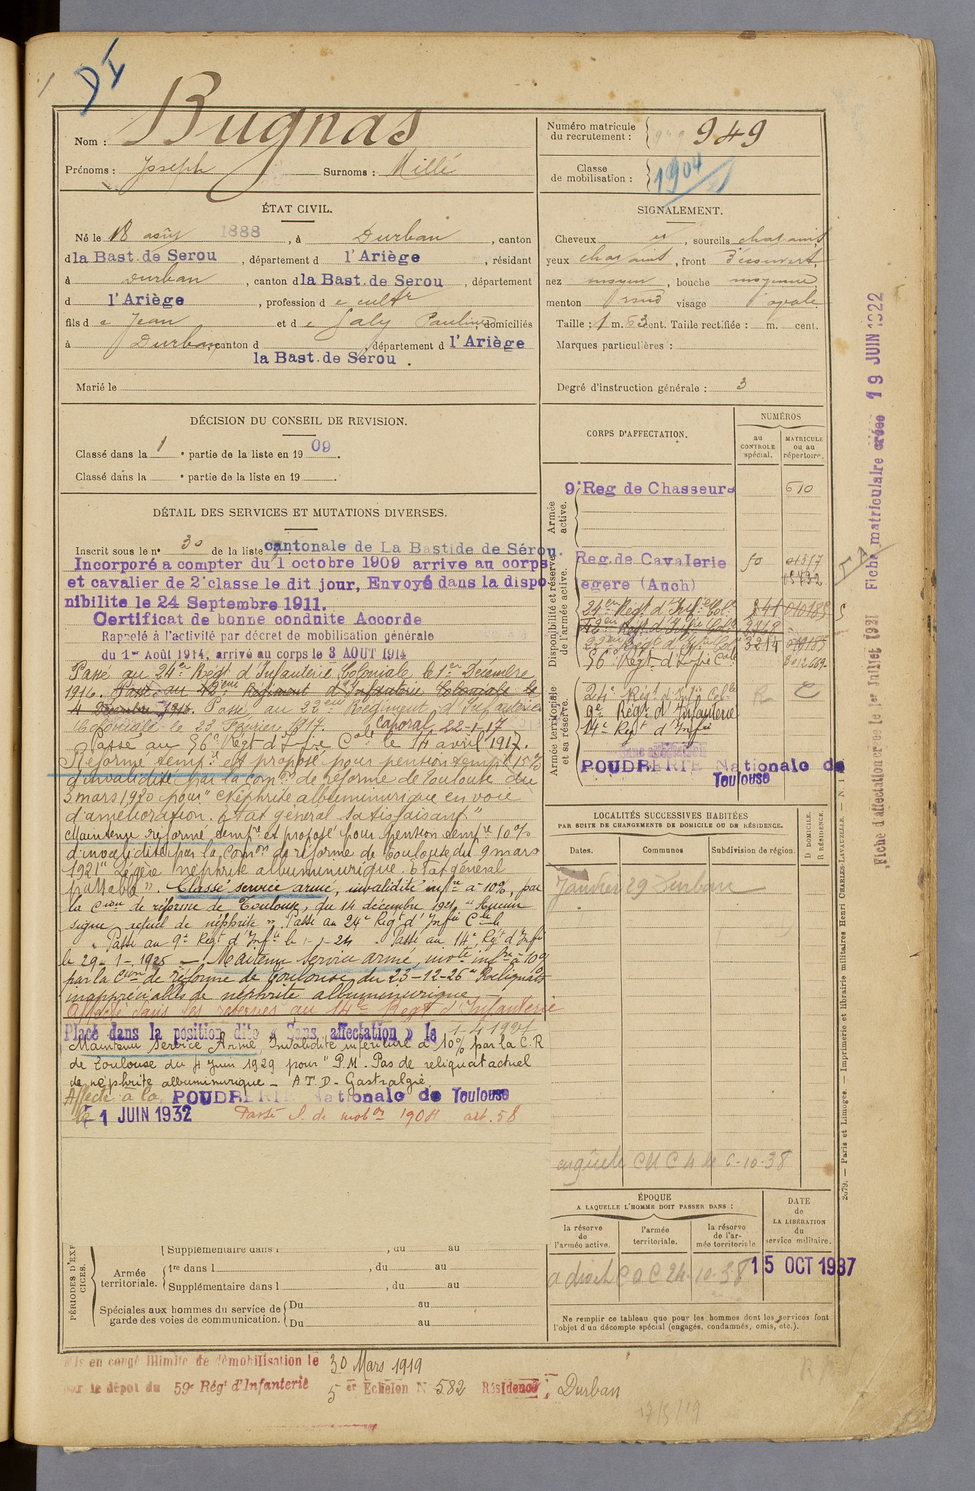 Nom : Bugnas
Prénoms : Joseph Surnoms : Millé
Numéro matricule du recrutement : 949
Classe de mobilisation : 1904
ÉTAT CIVIL.
Né le 18 août 1888, à Durban, canton
d la Bast. de Serou, département d l'Ariège, résidant
à Durban, canton d la Bast. de Serou, département
d l'Ariège, profession d e cultr
fils d e Jean et d e Galy Pauline, domiciliés
à Durban canton d , département d l'Ariège
la Bast. de Serou.
Marié le
SIGNALEMENT.
Cheveux et, sourcils chatains
yeux chatains, front découvert,
nez moyen, bouche moyenne
menton rond visage ovale
Taille : 1 m. 63 cent. Taille rectifiée : m. cent.
Marques particulières :
Degré d'instruction générale : 3
DÉCISION DU CONSEIL DE REVISION.
Classé dans la 1e partie de la liste en 1909.
Classé dans la e partie de la liste en 19 .
DÉTAIL DES SERVICES ET MUTATIONS DIVERSES.
Inscrit sous le n° 30 de la liste cantonale de La Bastide de Sérou.
Incorporé a compter du 1 octobre 1909 arrive au corps
et cavalier de 2e classe le dit jour, Envoyé dans la dispo
nibilite le 24 Septembre 1911.
Certificat de bonne conduite Accorde
Rappelé à l'activité par décret de mobilisation générale
du 1er Août 1914, arrivé au corps le 3 AOUT 1914
Passé au 24e Régt d'Infanterie Coloniale le 1er Décembre
1916. Passé au 42eme Régiment d'Infanterie Coloniale le
4 Décembre 1916. Passé au 22eme Régiment d'Infanterie
Coloniale le 23 Février 1917. Caporal 22-1-17
Passé au 56e Régt d'Ifrie Cale le 14 avril 1917.
Réformé temp.re et proposé pour pension temp.re 15%
d'invalidité par la comon de réforme de Toulouse du
3 mars 1920 pour "Néphrite albuminurique en voie
d'amélioration. État général satisfaisant"
Maintenu réformé temp.re et proposé pour pension temp.re 10%
d'invalidité par la Comon de réforme de Toulouse du 9 mars
1921 "Légère néphrite albuminurique. Etat général
passable". Classé service armé, invalidité infre à 10%, par
la Cion de réforme de Toulouse, du 14 décembre 1921 "Aucun
signe actuel de néphrite". Passé au 24e Régt d'Infie Cle le
Passé au 9e Régt d'Infie le 1-1-24. Passé au 14e Rgt d'Infie
le 29-1-1925 — Maintenu service armé, invté infre à 10%
par la Cion de réforme de Toulouse, du 23-12-26 "Reliquats
inappréciables de néphrite albuminurique
Affecté dans les réserves au 14e Régt d'Infanterie
Placé dans la position dite « Sans affectation » le 1-4-1927
Maintenu Service Armé Invalidité inférieure à 10% par la C.R
de Toulouse du 4 Juin 1929 pour "P.M. Pas de reliquat actuel
de néphrite albuminurique - A T D - Gastralgie
Affecté à la POUDRERIE Nationale de Toulouse
le 1 JUIN 1932 Passé cl. de mobon 1904 art. 58
CORPS D'AFFECTATION.
NUMÉROS
au CONTROLE spécial.
MATRICULE ou au répertoire.
Armée active.
9e Reg de Chasseurs 610
Disponibilité et réserve de l'armée active.
Reg. de Cavalerie 50
Légere (Auch)
24e Régt d'Infie Cole
42e Régt d'Infie Cole
22e Régt d'Infie Col 3214
56e Régt d'Ifrie Cale
Armée territoriale et sa réserve.
24e Régt d'Infie Cole
9e Régt d'Infanterie
14e Régt d'Infie
POUDRERIE Nationale de
Toulouse
LOCALITÉS SUCCESSIVES HABITÉES
PAR SUITE DE CHANGEMENTS DE DOMICILE OU DE RÉSIDENCE.
Dates. Communes Subdivision de région. D DOMICILE. R RÉSIDENCE.
Janvier 29 Durban
6-10-38
ÉPOQUE
A LAQUELLE L'HOMME DOIT PASSER DANS :
la réserve de l'armée active.
l'armée territoriale.
la réserve de l'armée territoriale
DATE de LA LIBÉRATION du service militaire.
15 OCT 1937
Ne remplir ce tableau que pour les hommes dont les services font
l'objet d'un décompte spécial (engagés, condamnés, omis, etc.).
PÉRIODES D'EXERCICES.
Supplémentaire dans l , du au
Armée territoriale.
1re dans l , du au
Supplémentaire dans l , du au
Spéciales aux hommes du service de garde des voies de communication.
Du au
Du au
Mis en congé illimité de démobilisation le 30 Mars 1919
par le dépôt du 59e Régt d'Infanterie 5er Echelon N° 582 Résidence : Durban
Fiche d'affectation créée le 1er Juillet 1921 Fiche matriculaire créée 19 JUIN 1922
2079. — Paris et Limoges. — Imprimerie et librairie militaires Henri CHARLES-LAVAUZELLE.